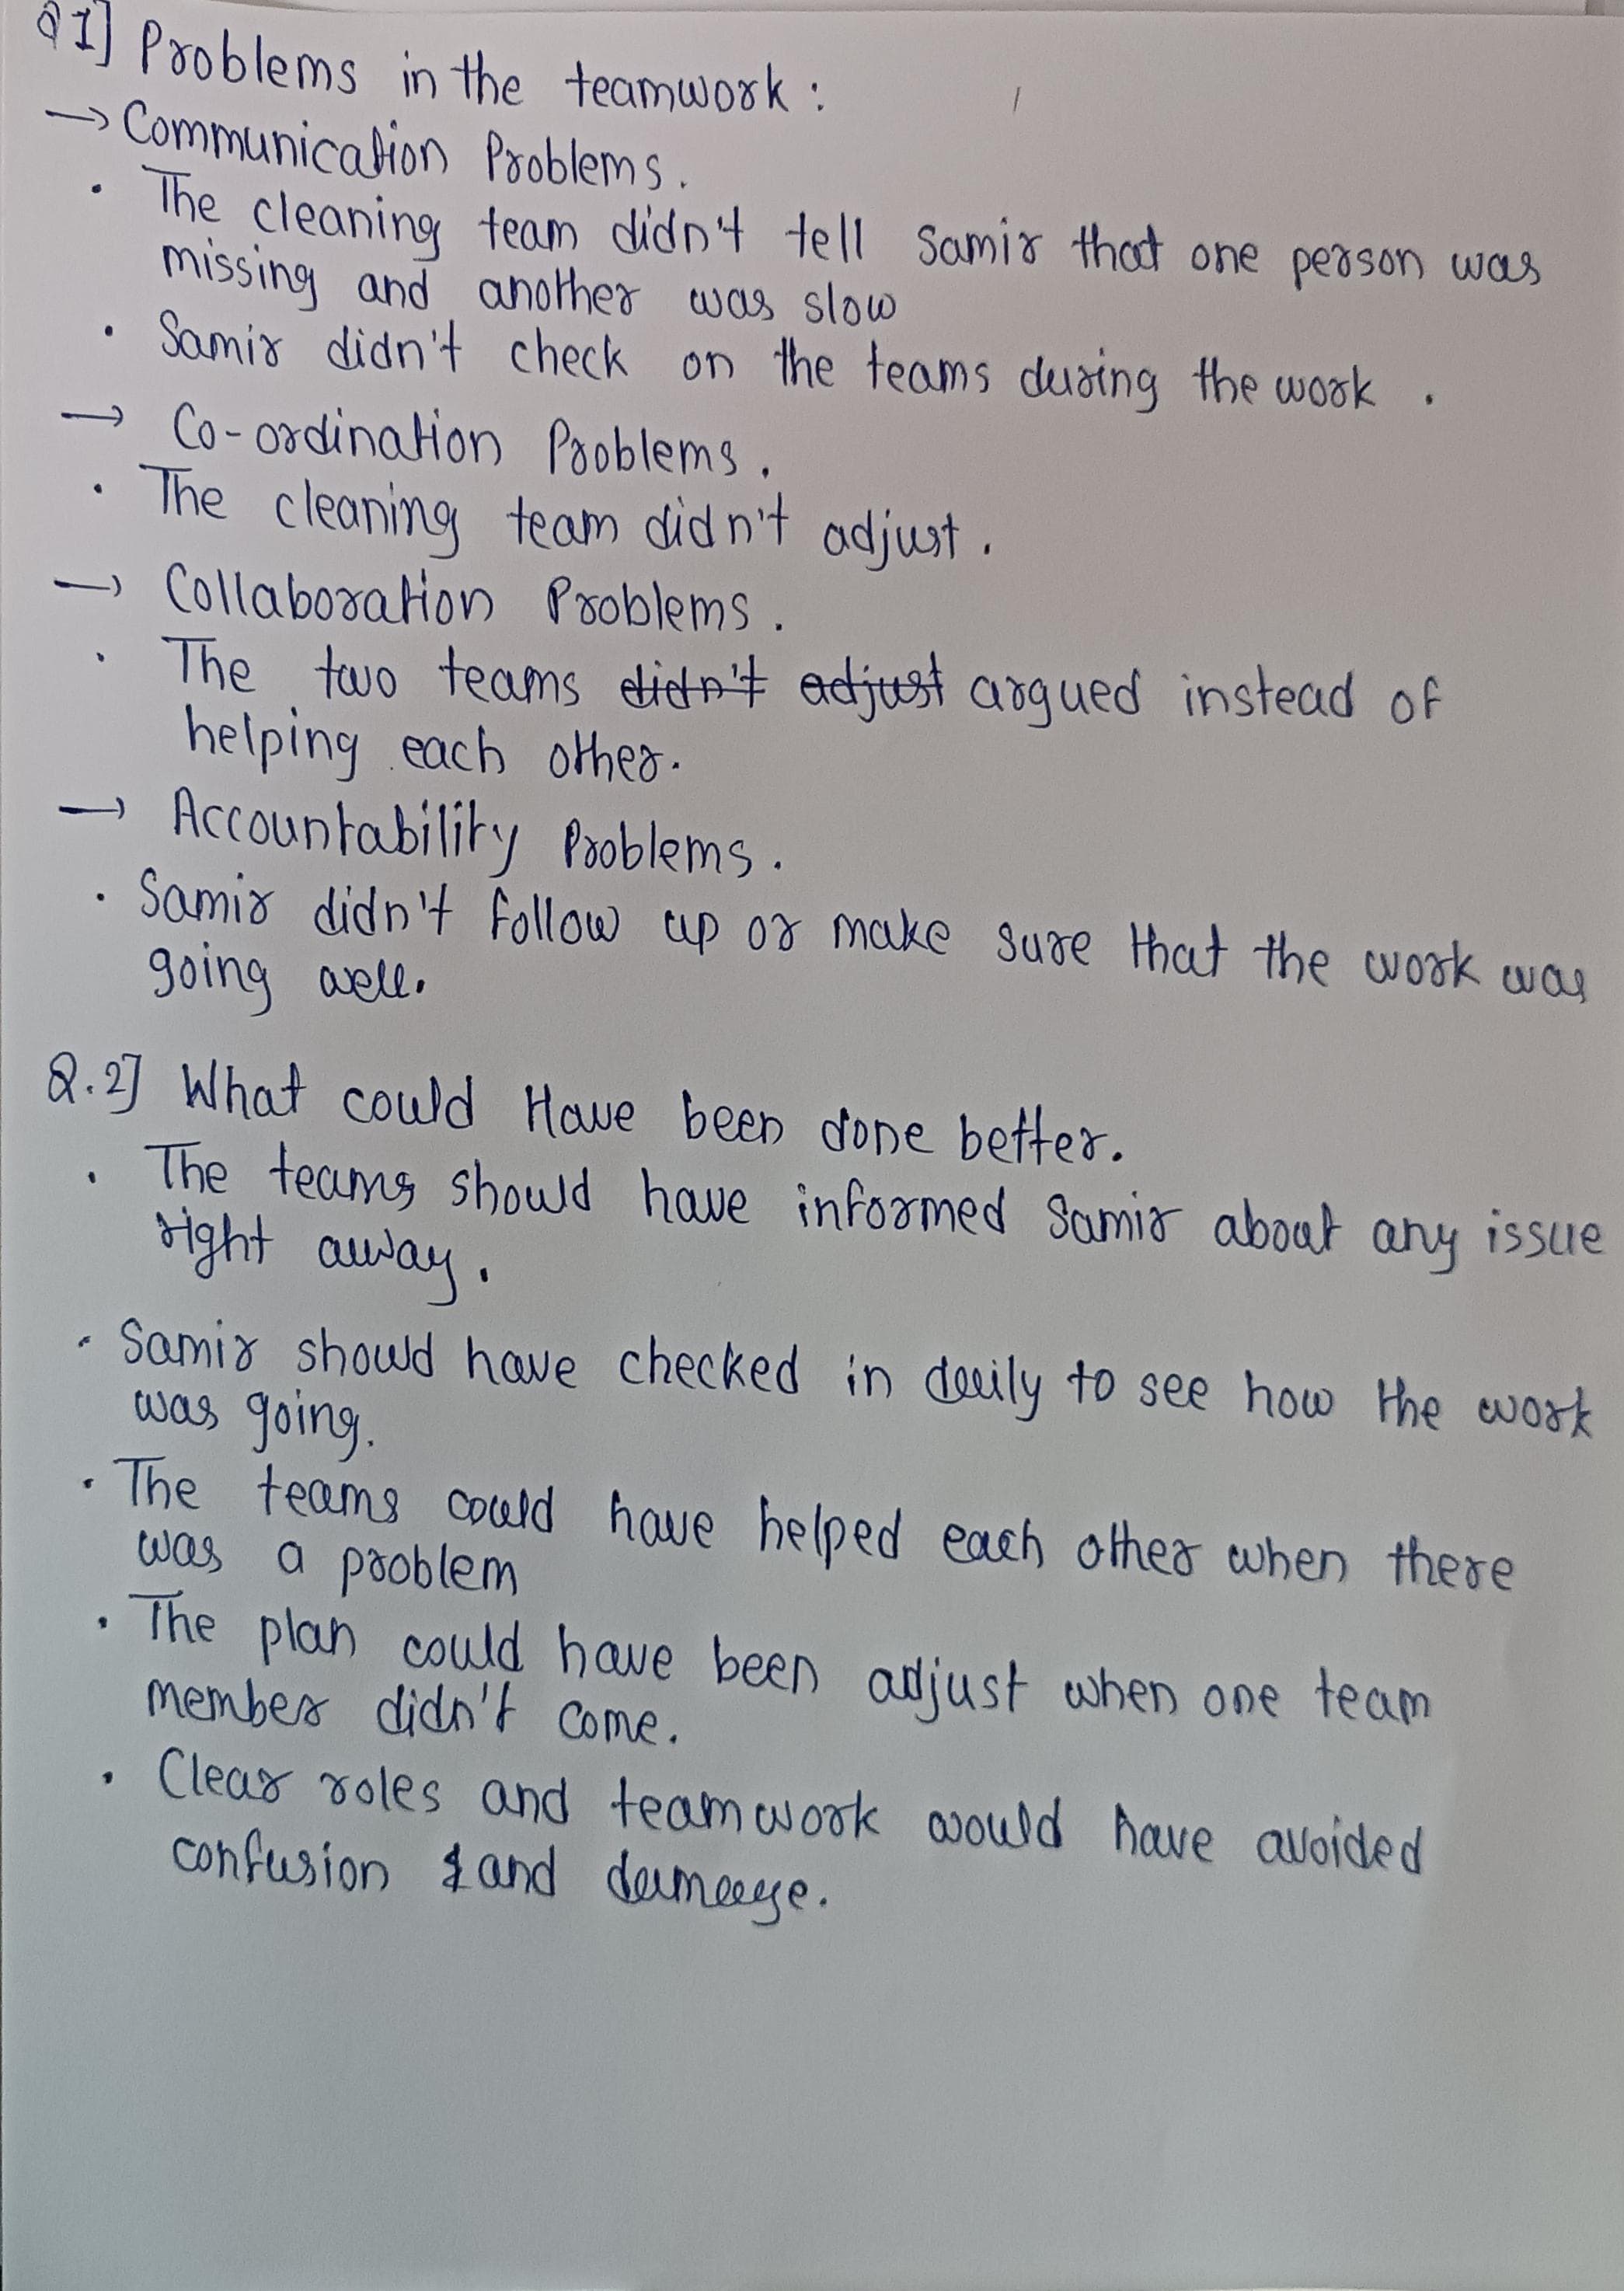 Q 1] Problems in the teamwork :
→ Communication Problems.
• The cleaning team didn't tell Samir that one person was
missing and another was slow
• Samir didn't check on the teams during the work .
→ Co-ordination Problems .
• The cleaning team didn't adjust .
→ Collaboration Problems .
• The two teams didn't adjust argued instead of
helping each other.
→ Accountability Problems .
• Samir didn't follow up or make sure that the work was
going well.
Q.2] What could Have been done better.
• The teams should have informed Samir about any issue
right away .
• Samir should have checked in daily to see how the work
was going.
• The teams could have helped each other when there
was a problem
• The plan could have been adjust when one team
member didn't come.
• Clear roles and teamwork would have avoided
confusion & and damage.